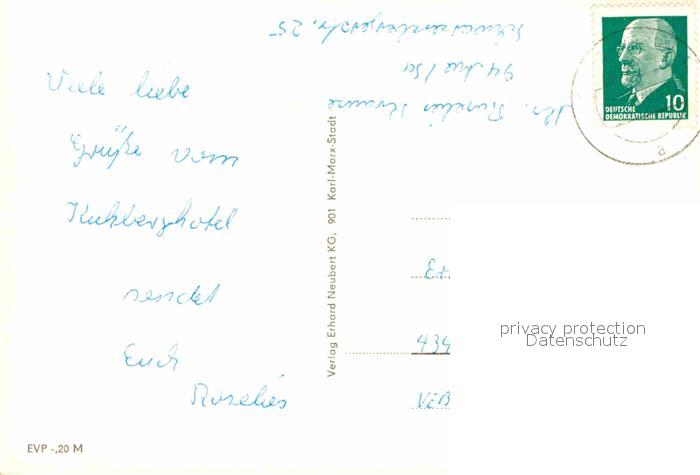 Viele liebe
Grüße vom
Kuhberghotel
sendet
Euch
Roselies
Schwarzenbergerstr. 25
94 Aue/Sa
Abs. Roselies
Er.
434
VEB
DEUTSCHE
DEMOKRATISCHE REPUBLIK
10
a
Verlag Erhard Neubert KG, 901 Karl-Marx-Stadt
privacy protection
Datenschutz
EVP -,20 M